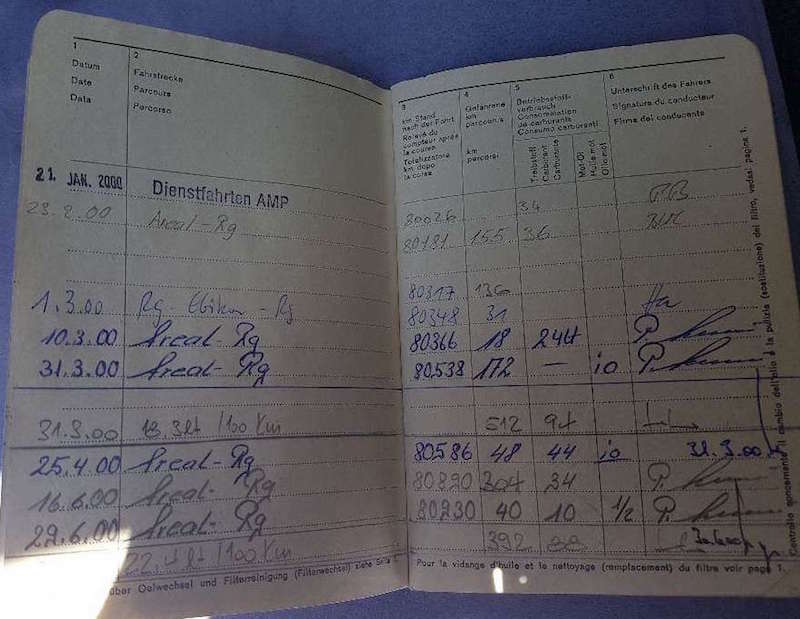 1
Datum
Date
Data
2
Fahrstrecke
Parcours
Percorso
21. JAN. 2000 Dienstfahrten AMP
23.2.00 Areal-Rg
1.3.00 Rg - Ebikon - Rg
10.3.00 Areal-Rg
31.3.00 Areal-Rg
31.3.00 18.3lt /100 Km
25.4.00 Areal-Rg
16.6.00 Areal-Rg
29.6.00 Areal-Rg
22. lt /100 Km
über Oelwechsel und Filterreinigung (Filterwechsel) siehe Seite
3
km Stand
nach der Fahrt
Relevé du
compteur après
la course
Totalizzatore
km dopo
la corsa
4
Gefahrene
km
parcourus
km
percorsi
5
Betriebsstoff-
verbrauch
Consommation
de carburants
Consumo carburanti
Treibstoff
Carburant
Carburante
Mot-Öl
Huile mot
Olio mot
6
Unterschrift des Fahrers
Signature du conducteur
Firma del conducente
80026 34
80181 155 36
80317 136
80348 31 Ha
80366 18 244 P.
80538 172 — io P.
512 94
80586 48 44 io 31.3.00
80890 304 34 P.
80930 40 10 1/2 P.
392 88
Pour la vidange d'huile et le nettoyage (remplacement) du filtre voir page 1.
Controllo concernente il cambio dell'olio e la pulizia (sostituzione) del filtro, vedasi pagina 1.